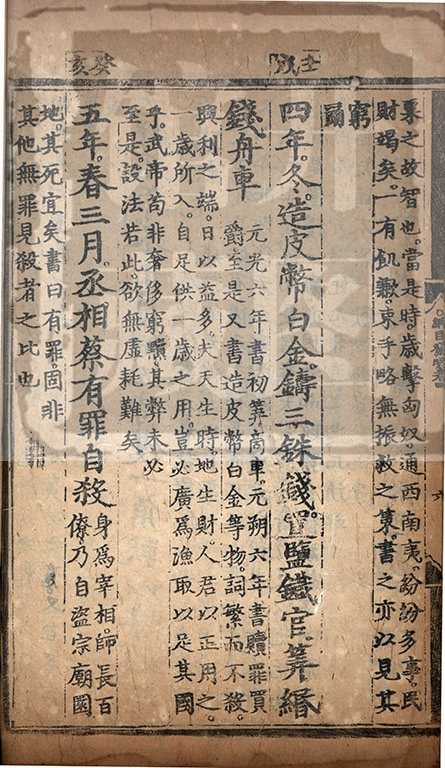 壬戌
癸亥
粟之故智也。當是時。歲擊匈奴。通西南夷。紛紛多事。民
財竭矣。一有飢歉。束手略無振救之策。書之亦以見其
窮
四年。冬。造皮幣白金。鑄三銖錢。置鹽鐵官。筭緡
錢舟車
元光六年書初筭商車。元朔六年書贖罪買
爵。至是又書造皮幣白金等物。詞繁而不殺。
興利之端。日以益多。夫天生時。地生財。人君以正用之。
一歲所入。自足供一歲之用。豈必廣爲漁取以足其國
乎。武帝苟非奢侈窮黷。其弊未必
至是。設法若此。欲無虛耗難矣。
五年。春三月。丞相蔡有罪自殺
身爲宰相。師長百
僚。乃自盜宗廟園
地。其死宜矣。書曰有罪。固非
其他無罪見殺者之比也